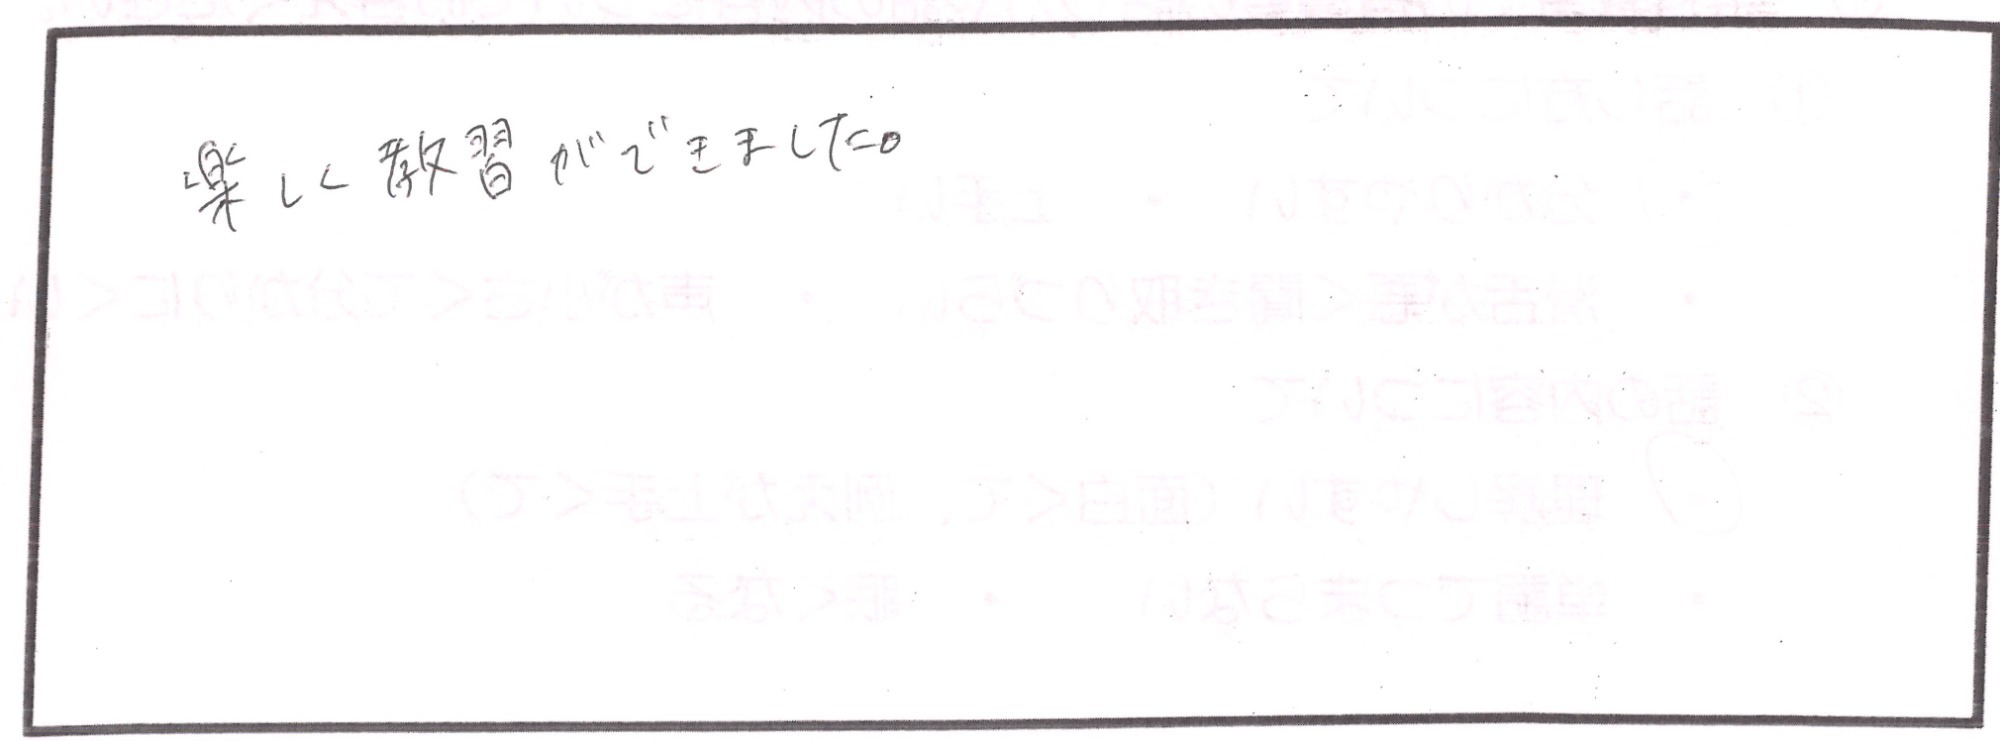 楽しく教習ができました。